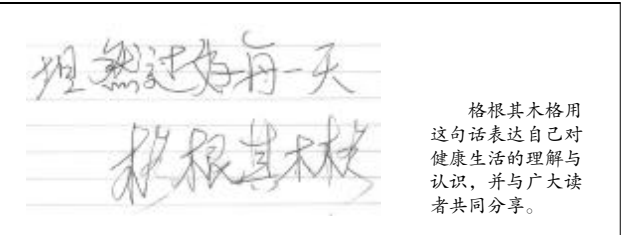 坦然过好每一天
格根其木格
格根其木格用
这句话表达自己对
健康生活的理解与
认识，并与广大读
者共同分享。